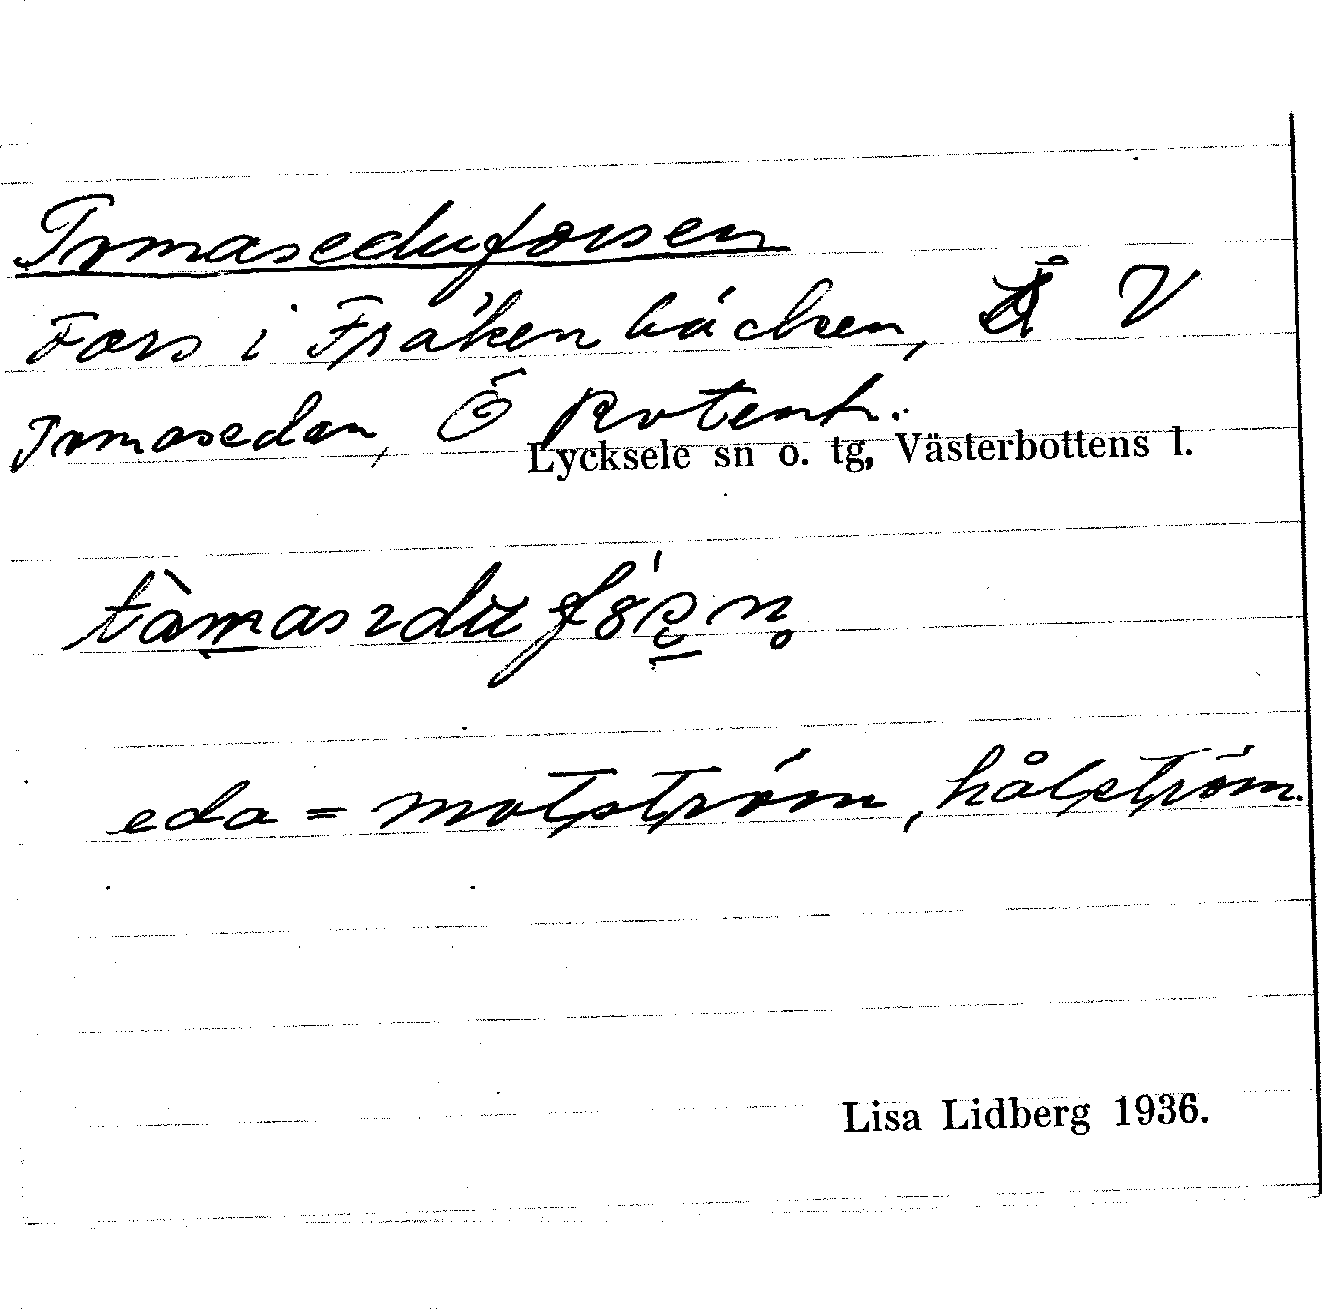 Tomaseduforsen
Fors i Fräkenbäcken, V
Tomasedan, Ö Rotent.
Lycksele sn o. tg, Västerbottens l.
eda = motström, hålström.
Lisa Lidberg 1936.